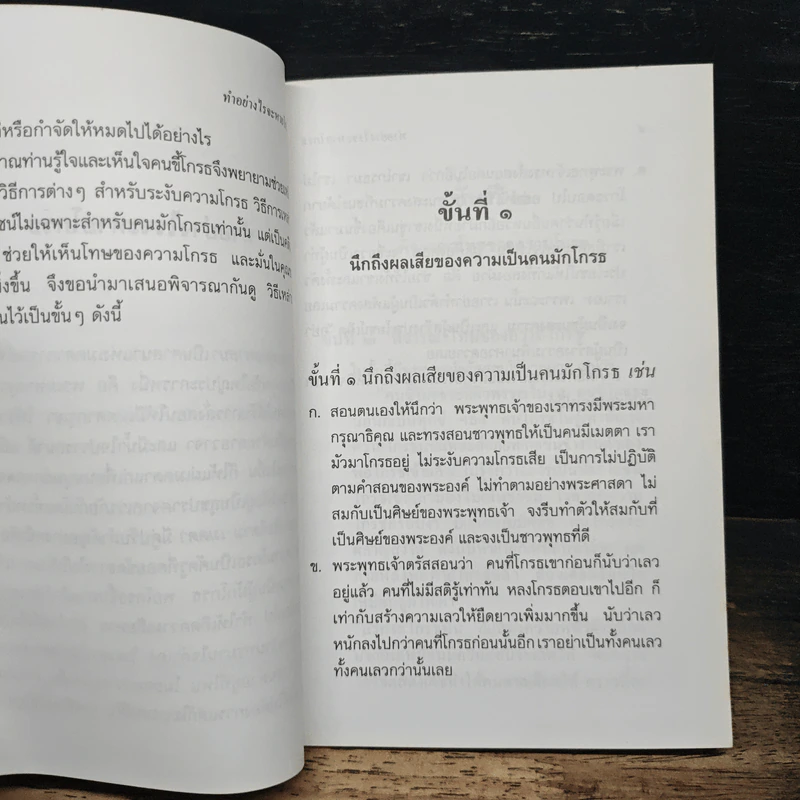 ทำอย่างไรจะหาย
หรือกำจัดให้หมดไปได้อย่างไร
ท่านรู้ใจและเห็นใจคนขี้โกรธจึงพยายามช่วย
วิธีการต่างๆ สำหรับระงับความโกรธ วิธีการ
ไม่เฉพาะสำหรับคนมักโกรธเท่านั้น แต่เป็น
ช่วยให้เห็นโทษของความโกรธ และมั่นใน
ขึ้น จึงขอนำมาเสนอพิจารณากันดู วิธีเหล่า
ไว้เป็นขั้นๆ ดังนี้
ขั้นที่ ๑
นึกถึงผลเสียของความเป็นคนมักโกรธ
ขั้นที่ ๑ นึกถึงผลเสียของความเป็นคนมักโกรธ เช่น
ก. สอนตนเองให้นึกว่า พระพุทธเจ้าของเราทรงมีพระมหา
กรุณาธิคุณ และทรงสอนชาวพุทธให้เป็นคนมีเมตตา เรา
มัวมาโกรธอยู่ ไม่ระงับความโกรธเสีย เป็นการไม่ปฏิบัติ
ตามคำสอนของพระองค์ ไม่ทำตามอย่างพระศาสดา ไม่
สมกับเป็นศิษย์ของพระพุทธเจ้า จงรีบทำตัวให้สมกับที่
เป็นศิษย์ของพระองค์ และจงเป็นชาวพุทธที่ดี
ข. พระพุทธเจ้าตรัสสอนว่า คนที่โกรธเขาก่อนก็นับว่าเลว
อยู่แล้ว คนที่ไม่มีสติรู้เท่าทัน หลงโกรธตอบเขาไปอีก ก็
เท่ากับสร้างความเลวให้ยืดยาวเพิ่มมากขึ้น นับว่าเลว
หนักลงไปกว่าคนที่โกรธก่อนนั้นอีก เราอย่าเป็นทั้งคนเลว
ทั้งคนเลวกว่านั้นเลย